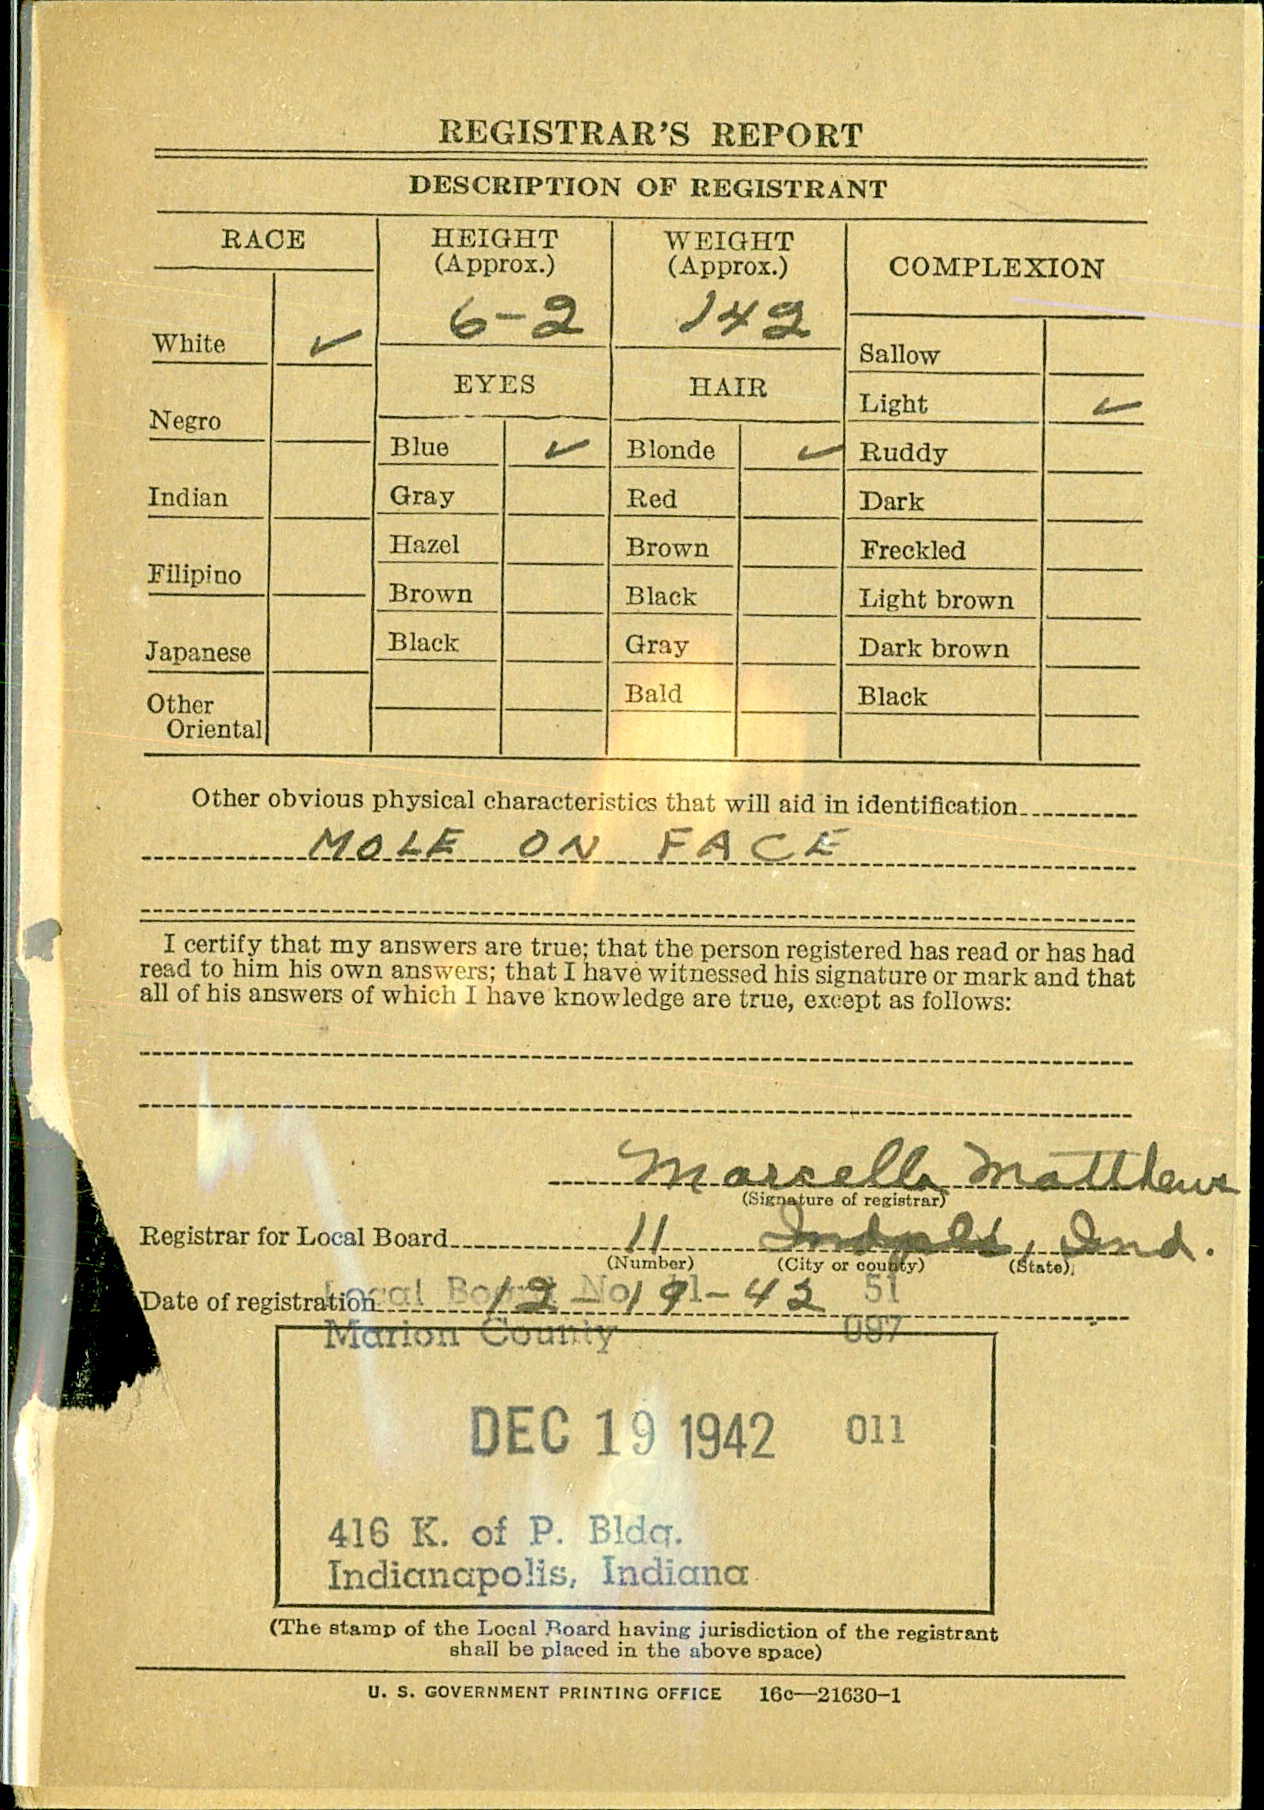 REGISTRAR'S REPORT
DESCRIPTION OF REGISTRANT
RACE
White ✓
Negro
Indian
Filipino
Japanese
Other
Oriental
HEIGHT
(Approx.)
6-2
WEIGHT
(Approx.)
142
EYES
Blue ✓
Gray
Hazel
Brown
Black
HAIR
Blonde ✓
Red
Brown
Black
Gray
Bald
COMPLEXION
Sallow
Light ✓
Ruddy
Dark
Freckled
Light brown
Dark brown
Black
Other obvious physical characteristics that will aid in identification
MOLE ON FACE
I certify that my answers are true; that the person registered has read or has had
read to him his own answers; that I have witnessed his signature or mark and that
all of his answers of which I have knowledge are true, except as follows:
Marcella Matthews
(Signature of registrar)
Registrar for Local Board 11 Indpls, Ind.
(Number) (City or county) (State)
Date of registration 12-19-42
Local Board No. 11 51
Marion County 097
DEC 19 1942 011
416 K. of P. Bldg.
Indianapolis, Indiana
(The stamp of the Local Board having jurisdiction of the registrant
shall be placed in the above space)
U. S. GOVERNMENT PRINTING OFFICE 16c—21630-1